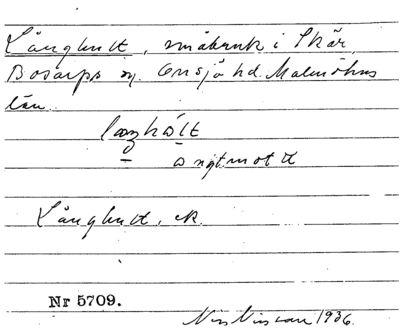 Långhult, småbruk i Skår,
Bosarps sn. Onsjö hd. Malmöhus
län.
laŋhölt
Långhult, ek.
Nr 5709.
Nils Nilsson 1936.